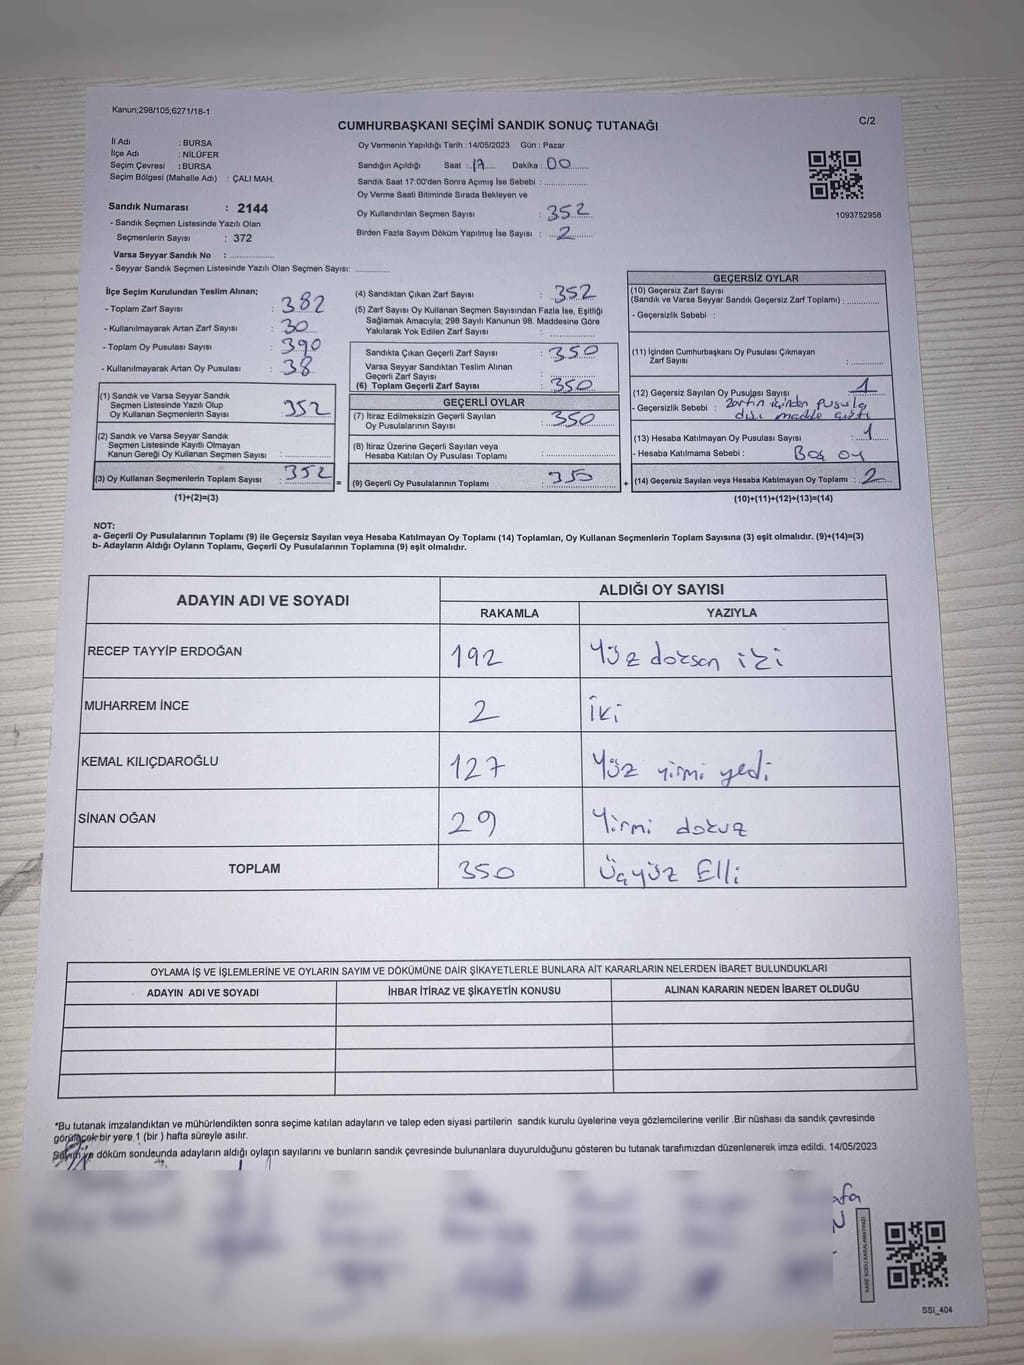 Kanun;298/105;6271/18-1
C/2
CUMHURBAŞKANI SEÇİMİ SANDIK SONUÇ TUTANAĞI
İl Adı : BURSA
İlçe Adı : NİLÜFER
Seçim Çevresi : BURSA
Seçim Bölgesi (Mahalle Adı) : ÇALI MAH.
Sandık Numarası : 2144
- Sandık Seçmen Listesinde Yazılı Olan
Seçmenlerin Sayısı : 372
Varsa Seyyar Sandık No :
- Seyyar Sandık Seçmen Listesinde Yazılı Olan Seçmen Sayısı:
Oy Vermenin Yapıldığı Tarih : 14/05/2023 Gün : Pazar
Sandığın Açıldığı Saat : 17 Dakika : 00
Sandık Saat 17:00'den Sonra Açımış İse Sebebi :
Oy Verme Saati Bitiminde Sırada Bekleyen ve
Oy Kullandırılan Seçmen Sayısı : 352
Birden Fazla Sayım Döküm Yapılmış İse Sayısı : 2
1093752958
İlçe Seçim Kurulundan Teslim Alınan;
- Toplam Zarf Sayısı : 382
- Kullanılmayarak Artan Zarf Sayısı : 30
- Toplam Oy Pusulası Sayısı : 390
- Kullanılmayarak Artan Oy Pusulası : 38
(1) Sandık ve Varsa Seyyar Sandık
Seçmen Listesinde Yazılı Olup
Oy Kullanan Seçmenlerin Sayısı : 352
(2) Sandık ve Varsa Seyyar Sandık
Seçmen Listesinde Kayıtlı Olmayan
Kanun Gereği Oy Kullanan Seçmen Sayısı :
(3) Oy Kullanan Seçmenlerin Toplam Sayısı : 352
(1)+(2)=(3)
(4) Sandıktan Çıkan Zarf Sayısı : 352
(5) Zarf Sayısı Oy Kullanan Seçmen Sayısından Fazla İse, Eşitliği
Sağlamak Amacıyla; 298 Sayılı Kanunun 98. Maddesine Göre
Yakılarak Yok Edilen Zarf Sayısı :
Sandıkta Çıkan Geçerli Zarf Sayısı : 350
Varsa Seyyar Sandıktan Teslim Alınan
Geçerli Zarf Sayısı :
(6) Toplam Geçerli Zarf Sayısı : 350
GEÇERLİ OYLAR
(7) İtiraz Edilmeksizin Geçerli Sayılan
Oy Pusulalarının Sayısı : 350
(8) İtiraz Üzerine Geçerli Sayılan veya
Hesaba Katılan Oy Pusulası Toplamı :
(9) Geçerli Oy Pusulalarının Toplamı : 350
=
+
GEÇERSİZ OYLAR
(10) Geçersiz Zarf Sayısı
(Sandık ve Varsa Seyyar Sandık Geçersiz Zarf Toplamı) :
- Geçersizlik Sebebi :
(11) İçinden Cumhurbaşkanı Oy Pusulası Çıkmayan
Zarf Sayısı :
(12) Geçersiz Sayılan Oy Pusulası Sayısı : 1
- Geçersizlik Sebebi : Zarfın içinden pusula
dışı madde çıktı
(13) Hesaba Katılmayan Oy Pusulası Sayısı : 1
- Hesaba Katılmama Sebebi : Boş oy
(14) Geçersiz Sayılan veya Hesaba Katılmayan Oy Toplamı : 2
(10)+(11)+(12)+(13)=(14)
NOT:
a- Geçerli Oy Pusulalarının Toplamı (9) ile Geçersiz Sayılan veya Hesaba Katılmayan Oy Toplamı (14) Toplamları, Oy Kullanan Seçmenlerin Toplam Sayısına (3) eşit olmalıdır. (9)+(14)=(3)
b- Adayların Aldığı Oyların Toplamı, Geçerli Oy Pusulalarının Toplamına (9) eşit olmalıdır.
ADAYIN ADI VE SOYADI
ALDIĞI OY SAYISI
RAKAMLA YAZIYLA
RECEP TAYYİP ERDOĞAN 192 Yüz doksan iki
MUHARREM İNCE 2 İki
KEMAL KILIÇDAROĞLU 127 Yüz yirmi yedi
SİNAN OĞAN 29 Yirmi dokuz
TOPLAM 350 Üçyüz Elli
OYLAMA İŞ VE İŞLEMLERİNE VE OYLARIN SAYIM VE DÖKÜMÜNE DAİR ŞİKAYETLERLE BUNLARA AİT KARARLARIN NELERDEN İBARET BULUNDUKLARI
ADAYIN ADI VE SOYADI İHBAR İTİRAZ VE ŞİKAYETİN KONUSU ALINAN KARARIN NEDEN İBARET OLDUĞU
*Bu tutanak imzalandıktan ve mühürlendikten sonra seçime katılan adayların ve talep eden siyasi partilerin sandık kurulu üyelerine veya gözlemcilerine verilir .Bir nüshası da sandık çevresinde
görülecek bir yere 1 (bir ) hafta süreyle asılır.
Sayım ve döküm sonucunda adayların aldığı oyların sayılarını ve bunların sandık çevresinde bulunanlara duyurulduğunu gösteren bu tutanak tarafımızdan düzenlenerek imza edildi. 14/05/2023
KARE KODU KARALAMAYINIZ!
SSI_404